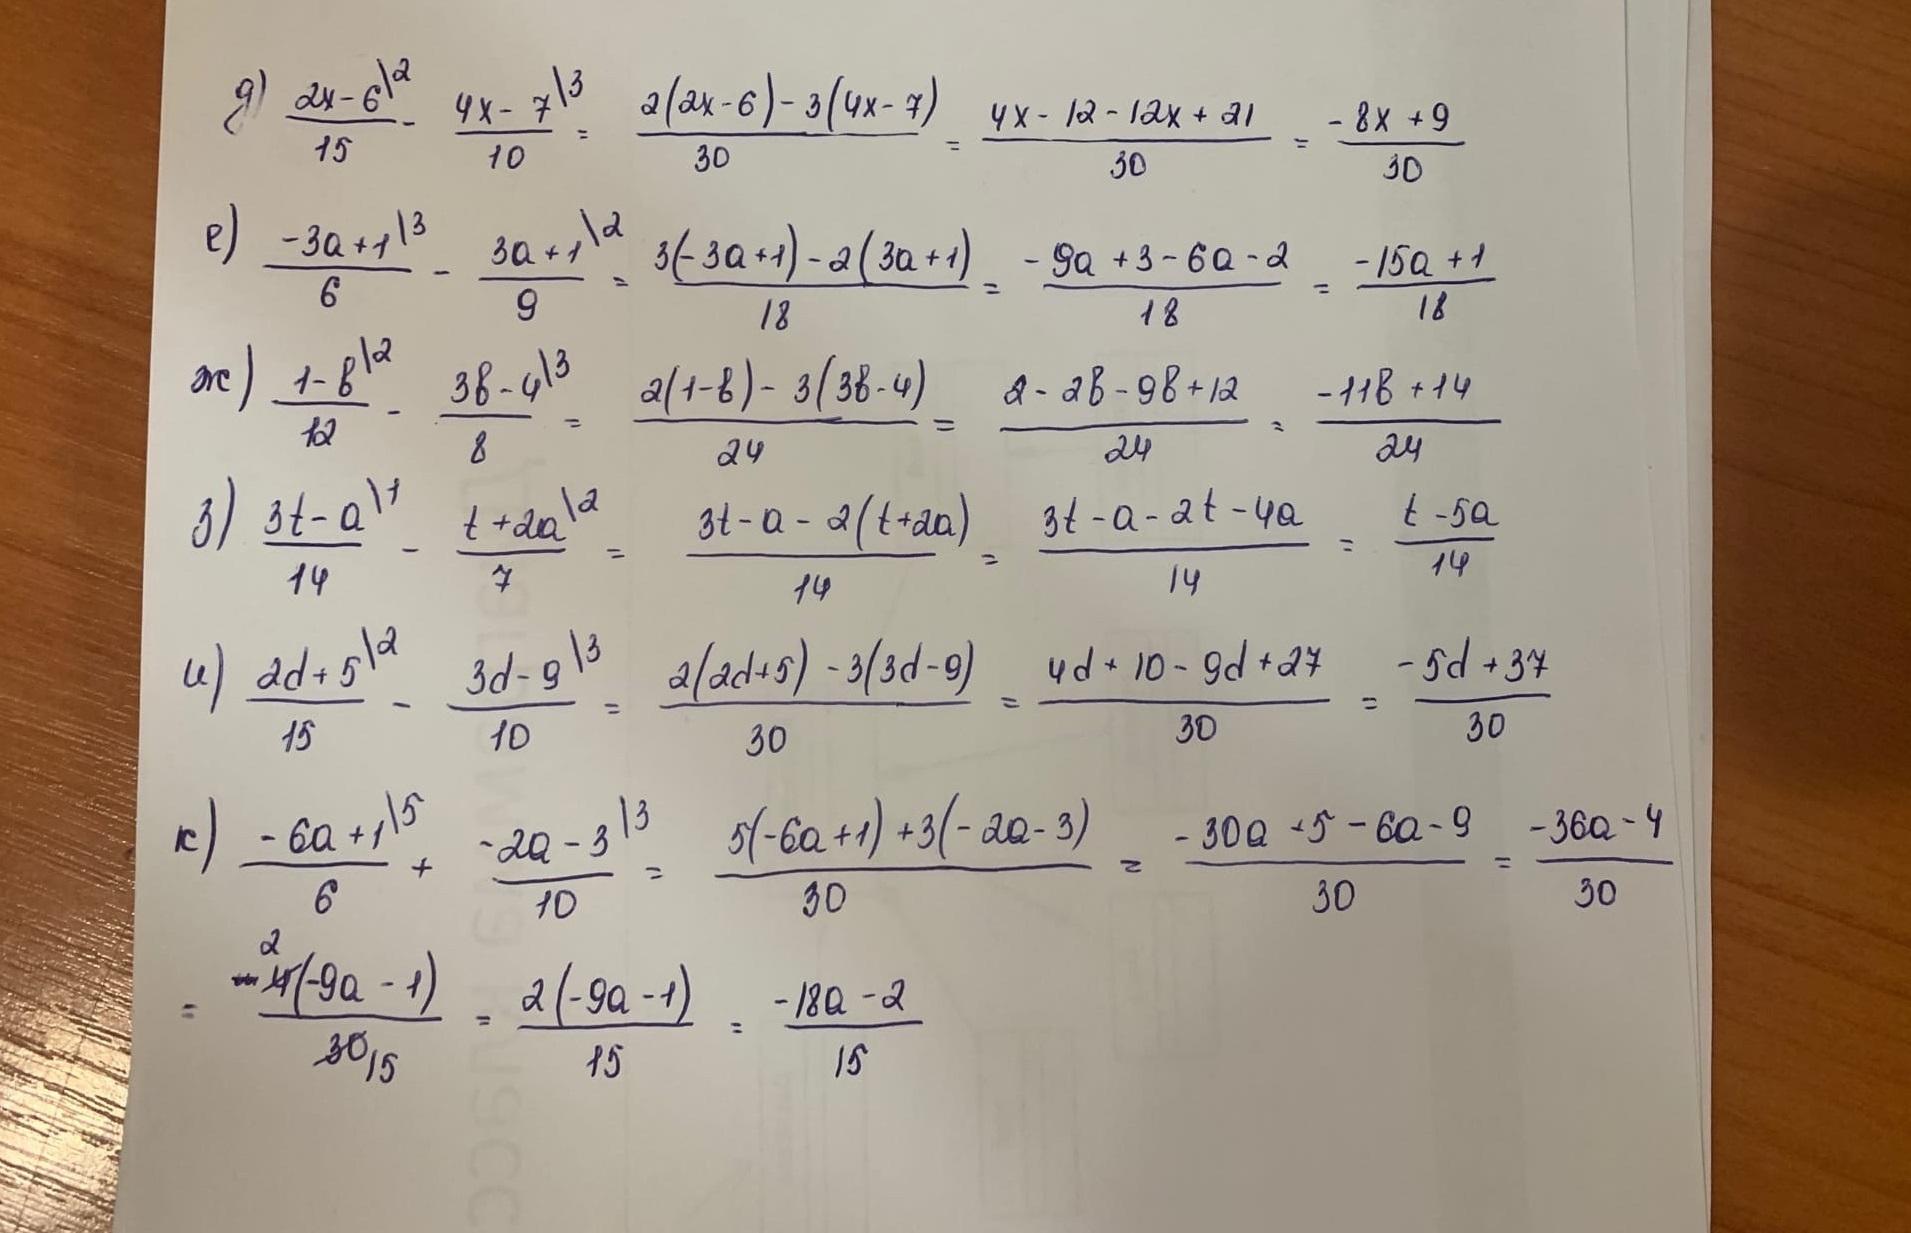 д) (2x-6\2)/15 - (4x-7\3)/10 = (2(2x-6)-3(4x-7))/30 = (4x-12-12x+21)/30 = (-8x+9)/30
е) (-3a+1\3)/6 - (3a+1\2)/9 = (3(-3a+1)-2(3a+1))/18 = (-9a+3-6a-2)/18 = (-15a+1)/18
ж) (1-b\2)/12 - (3b-4\3)/8 = (2(1-b)-3(3b-4))/24 = (2-2b-9b+12)/24 = (-11b+14)/24
з) (3t-a\1)/14 - (t+2a\2)/7 = (3t-a-2(t+2a))/14 = (3t-a-2t-4a)/14 = (t-5a)/14
и) (2d+5\2)/15 - (3d-9\3)/10 = (2(2d+5)-3(3d-9))/30 = (4d+10-9d+27)/30 = (-5d+37)/30
к) (-6a+1\5)/6 + (-2a-3\3)/10 = (5(-6a+1)+3(-2a-3))/30 = (-30a+5-6a-9)/30 = (-36a-4)/30
= (2 4(-9a-1))/(30 15) = (2(-9a-1))/15 = (-18a-2)/15